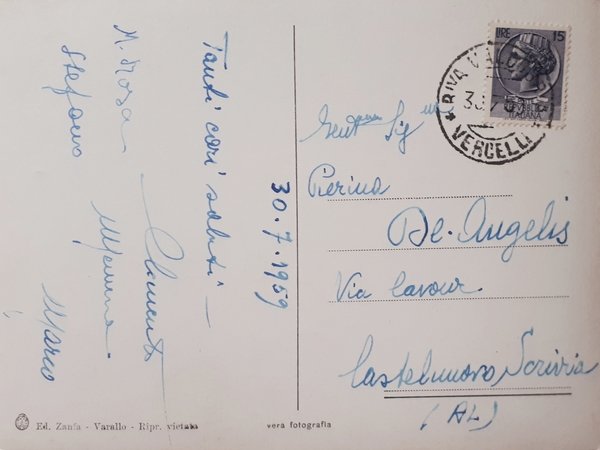 30.7.1959
Tanti cari saluti —
M. Rosa
Clemente
Stefano
Marco
LIRE 15
ITALIANA
RIVA VALD
VERCELLI
Gent Sig
Pierina
De. Angelis
Via Cavour
Castelnuovo Scrivia
(AL)
Ed. Zanfa - Varallo - Ripr. vietata
vera fotografia